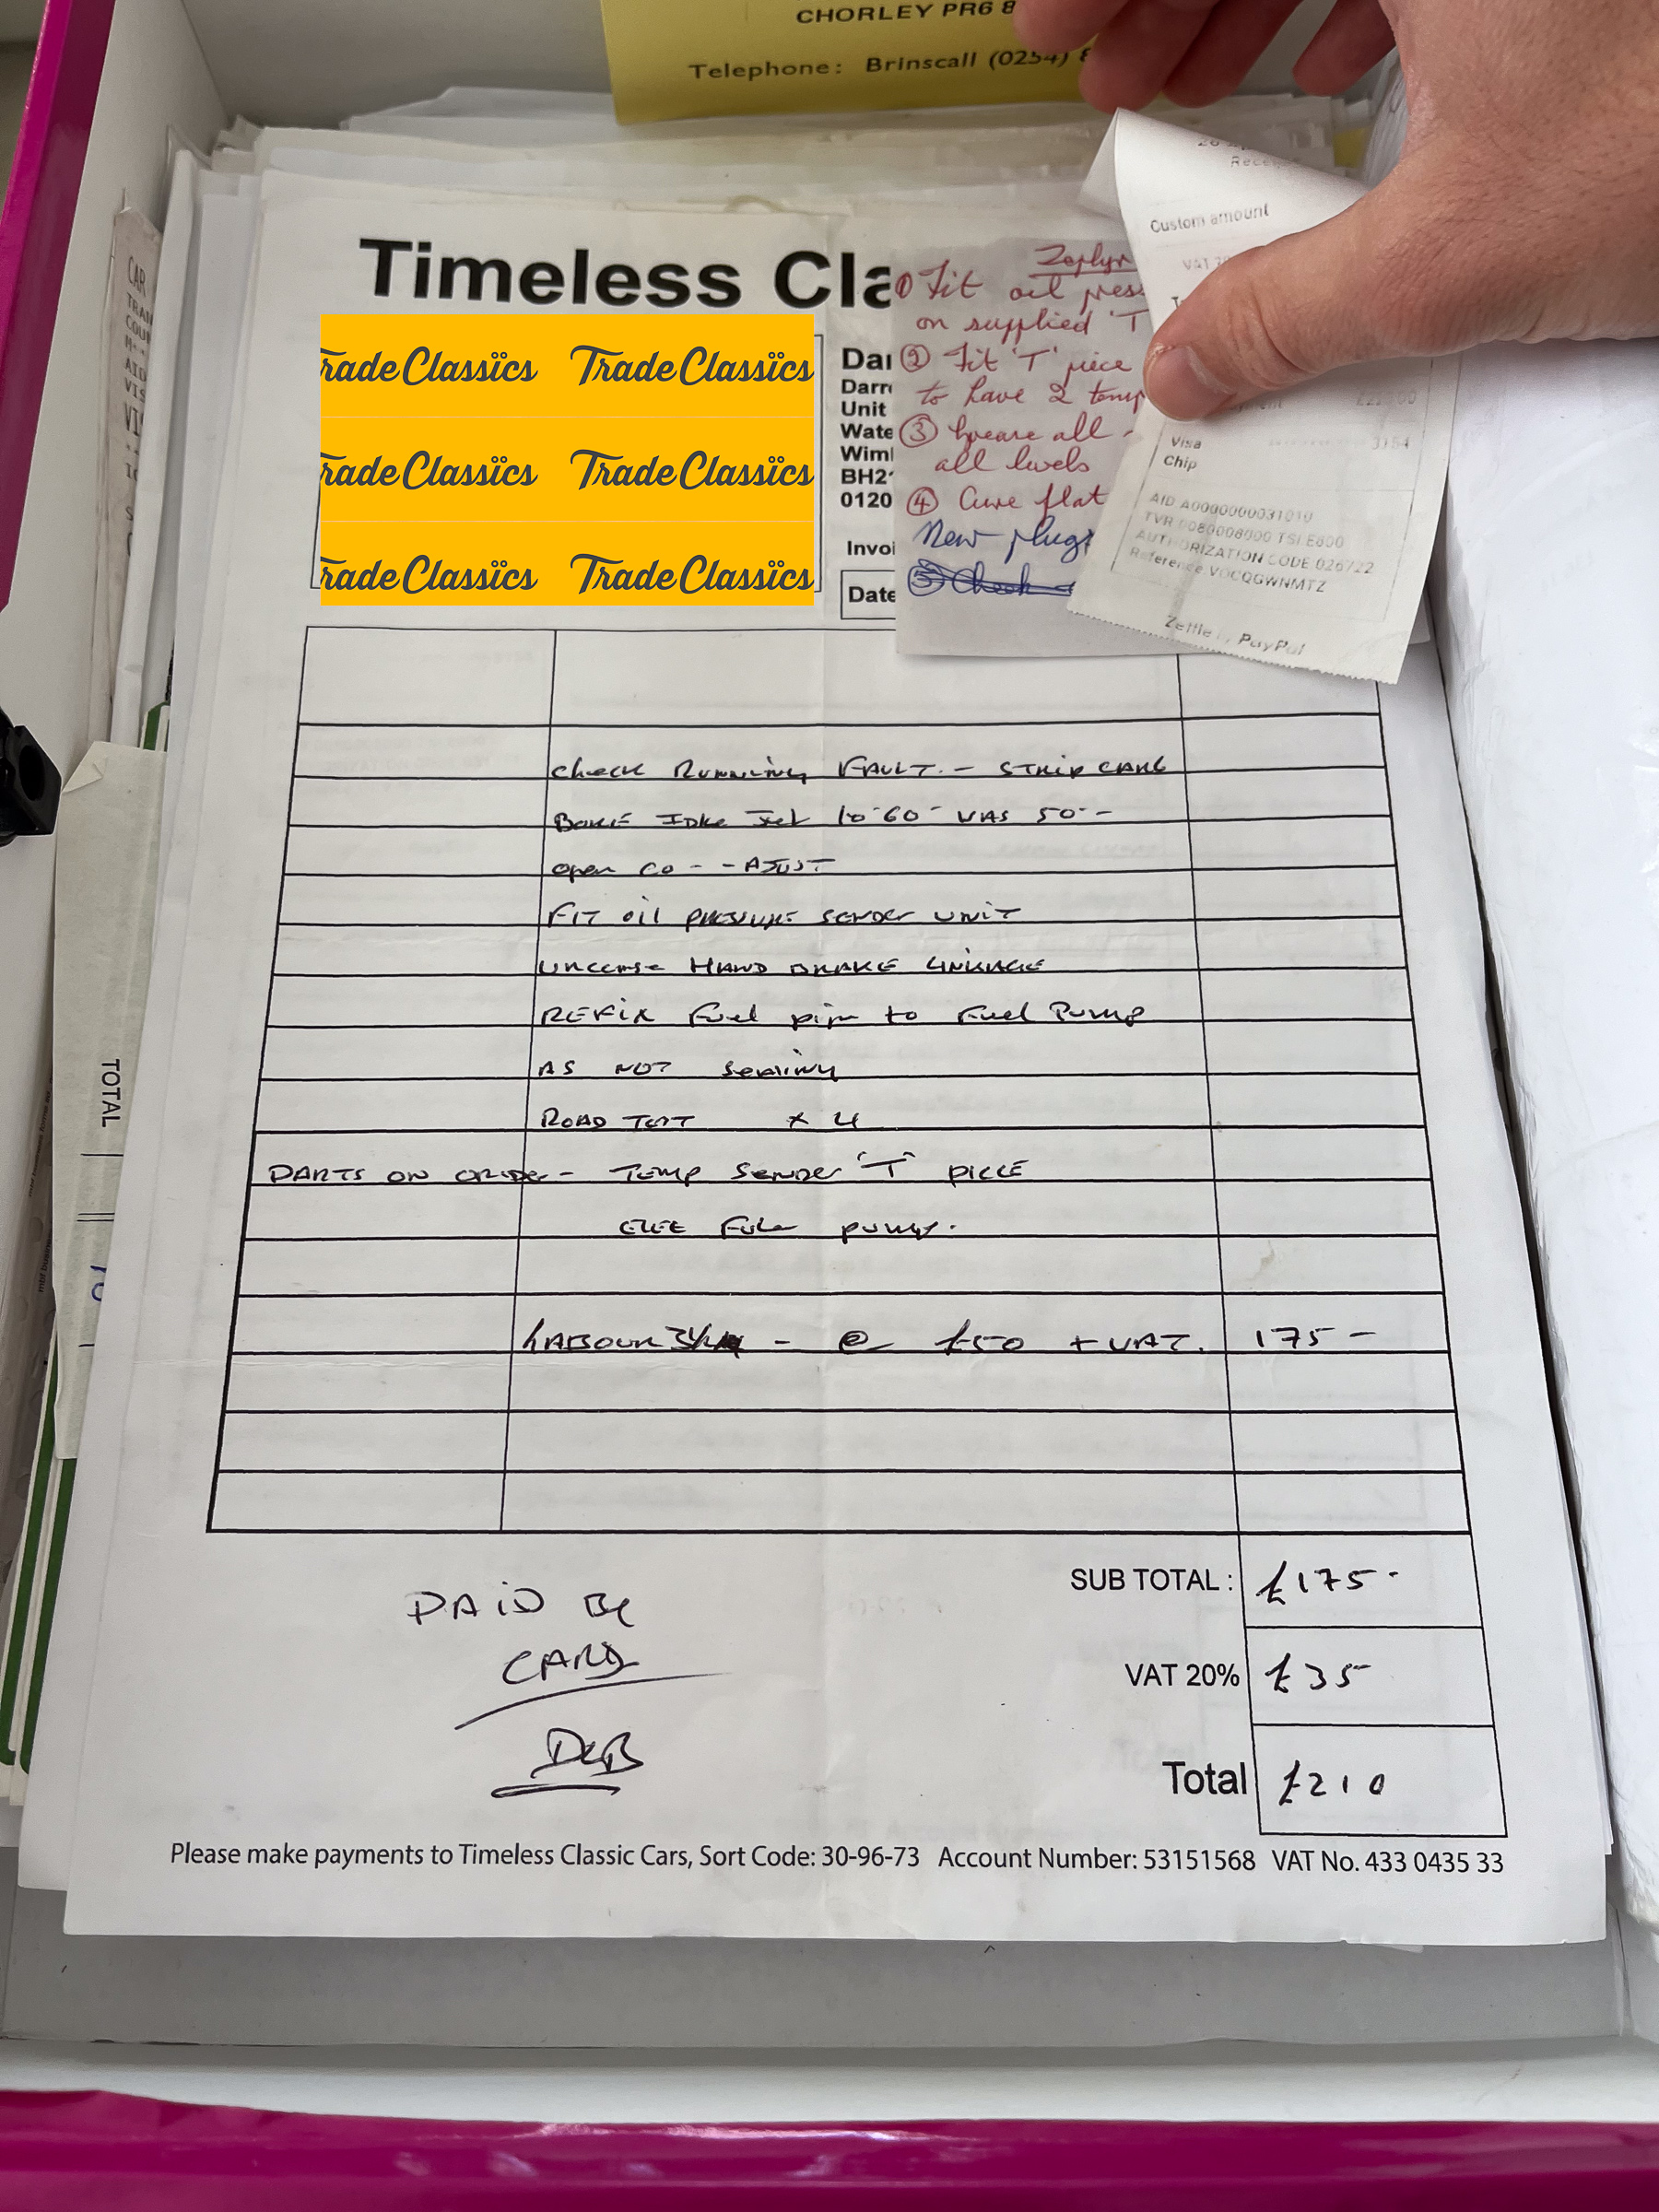 CHORLEY PR6 8
Telephone: Brinscall (0254)
Timeless Cla
rade Classïcs Trade Classïcs
rade Classïcs Trade Classïcs
rade Classïcs Trade Classïcs
Dar
Darre
Unit
Wate
Wiml
BH21
0120
Invoi
Date
Zephyr
① Fit oil press
on supplied 'T
② Fit 'T' piece
to have 2 temp
③ Grease all
all levels
④ Cure flat
New plugs
⑤ Check
Custom amount
VAT
Visa 3154
Chip
AID A0000000031010
TVR 0080008000 TSI E800
AUTHORIZATION CODE 026722
Reference VOCQGWNMTZ
Zettle PayPal
CAR
AID
VIS
TOTAL
Check RUNNING FAULT. - STRIP CARB
Idle Jet to 60 - WAS 50 -
open CO - - AJUST
FIT oil PRESSURE SENDER UNIT
HAND BRAKE LINKAGE
REFIX Fuel pipe to Fuel Pump
AS NOT Sealing
ROAD TEST x 4
PARTS ON ORDER - TEMP SENDER 'T' PIECE
pump.
LABOUR - @ £50 + VAT. 175 -
SUB TOTAL : £175 -
VAT 20% £35 -
Total £210
PAID By
CARD
DCB
Please make payments to Timeless Classic Cars, Sort Code: 30-96-73 Account Number: 53151568 VAT No. 433 0435 33